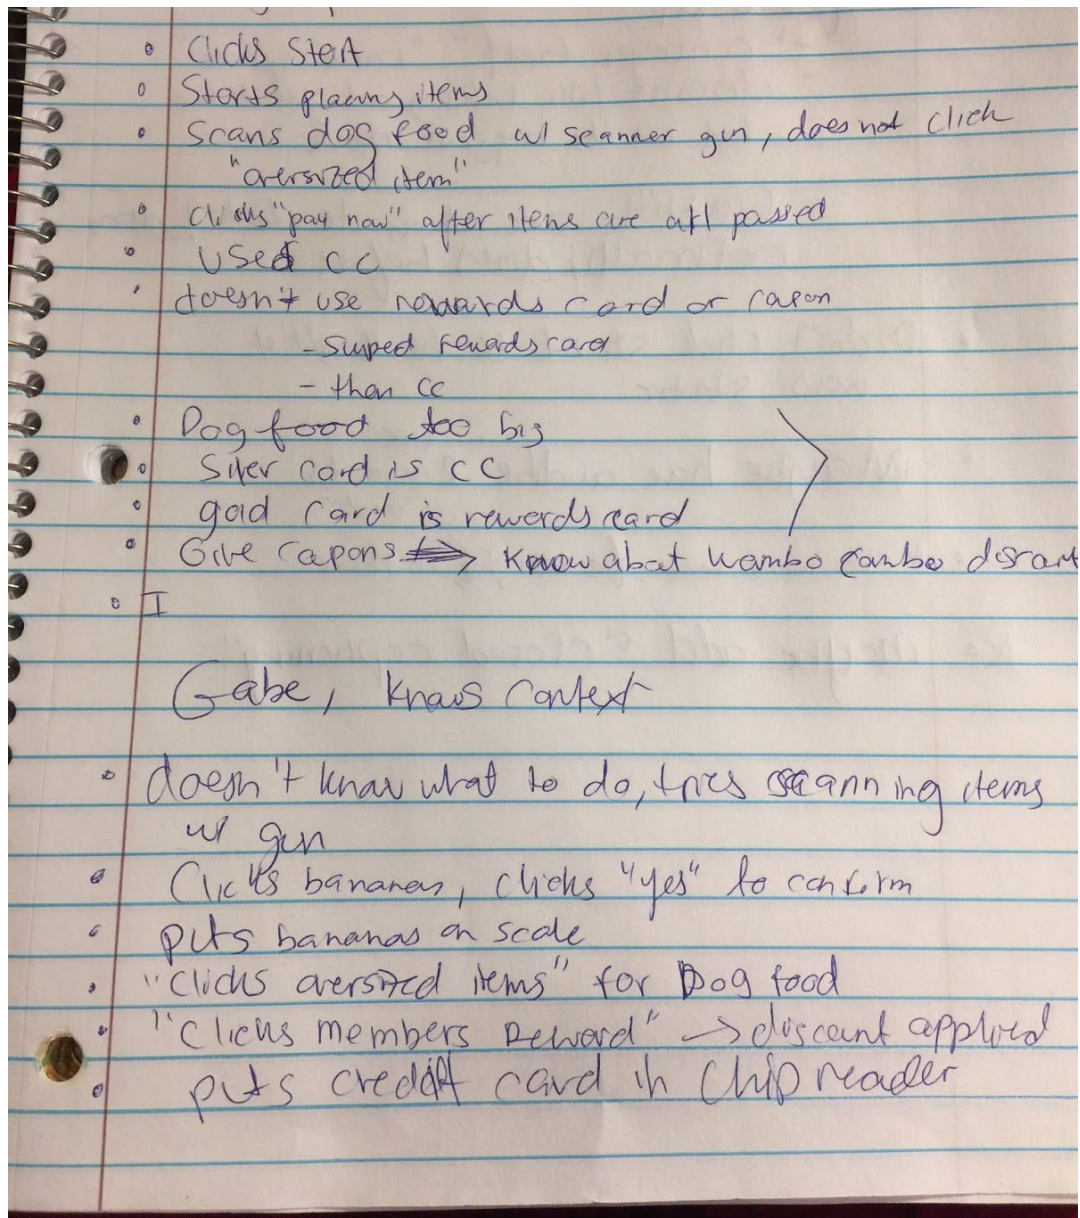 • Clicks Start
• Starts placing items
• Scans dog food w/ scanner gun, does not click
"oversized item"
• clicks "pay now" after items are all passed
• Used CC
• doesn't use rewards card or
- swiped rewards card
- then CC
• Dog food too big
• Silver card is CC
• gold card is rewards card
• Give → Know about combo discount
• I
Gabe, knows context
• doesn't know what to do, tries scanning items
w/ gun
• Clicks bananas, clicks "yes" to confirm
• puts bananas on scale
• "Clicks oversized items" for Dog food
• "Clicks members Reward" → discount applied
• puts credit card in Chip reader